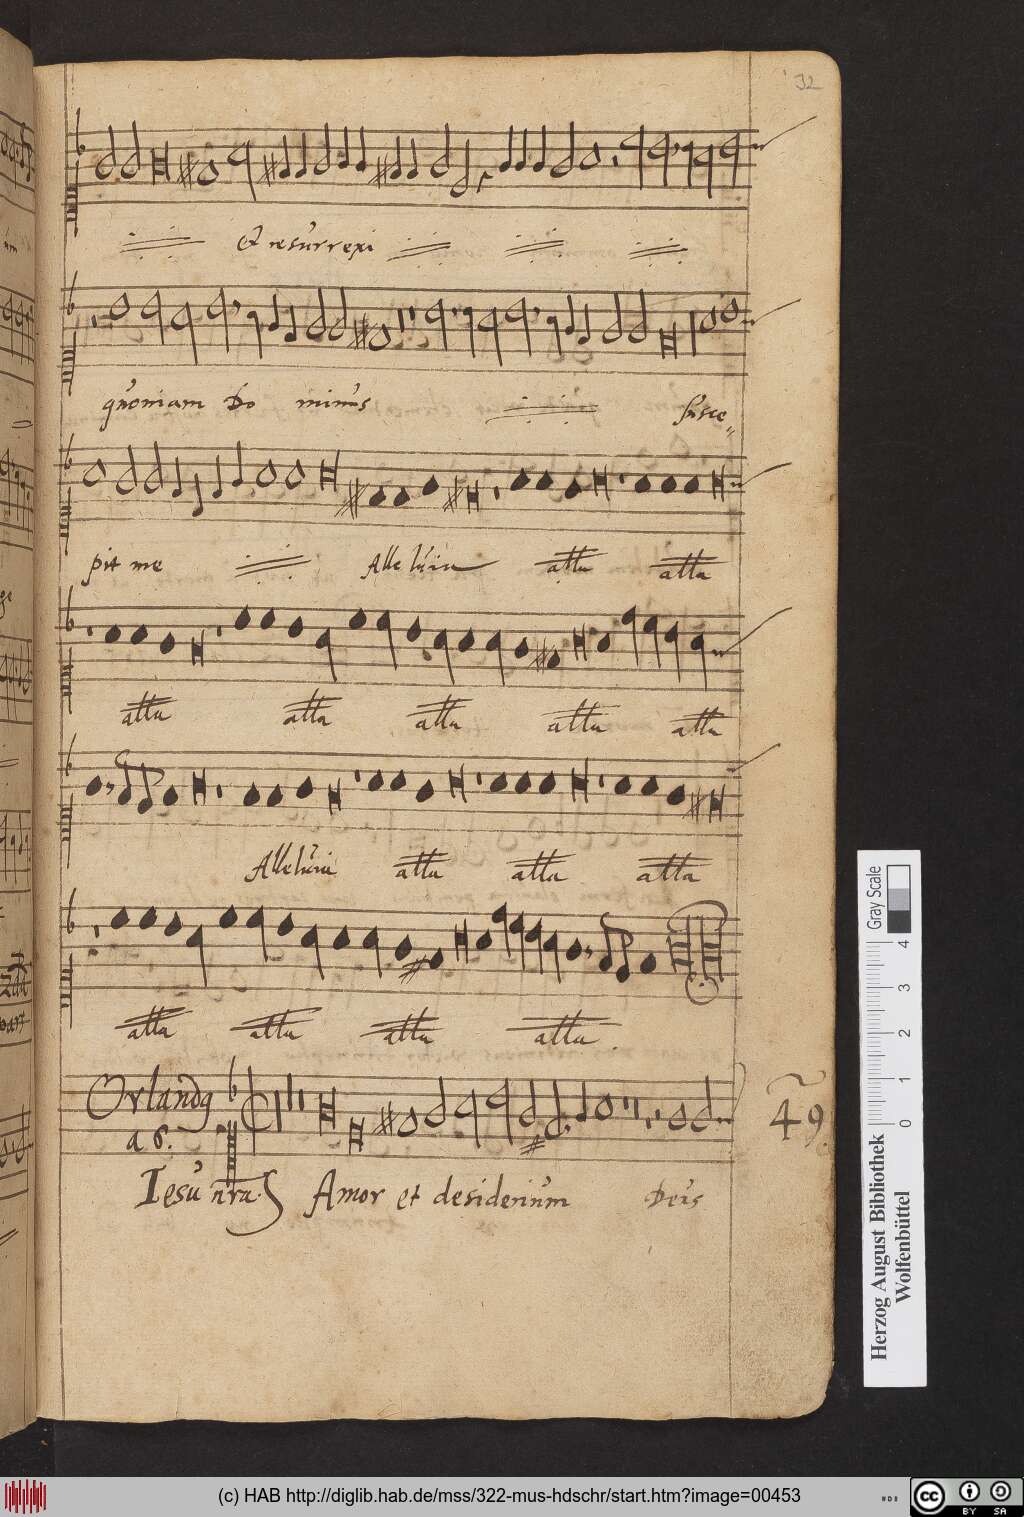 32
et resurrexi
quoniam Do minus
susce=
pit me Alleluia alla alla
alla alla alla alla alla
Alleluia alla alla alla
alla alla alla alla
Orlandq
a 6.
49
Iesu nra. Amor et desiderium Deus
Gray Scale
0 1 2 3 4
Herzog August Bibliothek
Wolfenbüttel
(c) HAB http://diglib.hab.de/mss/322-mus-hdschr/start.htm?image=00453
cc BY SA